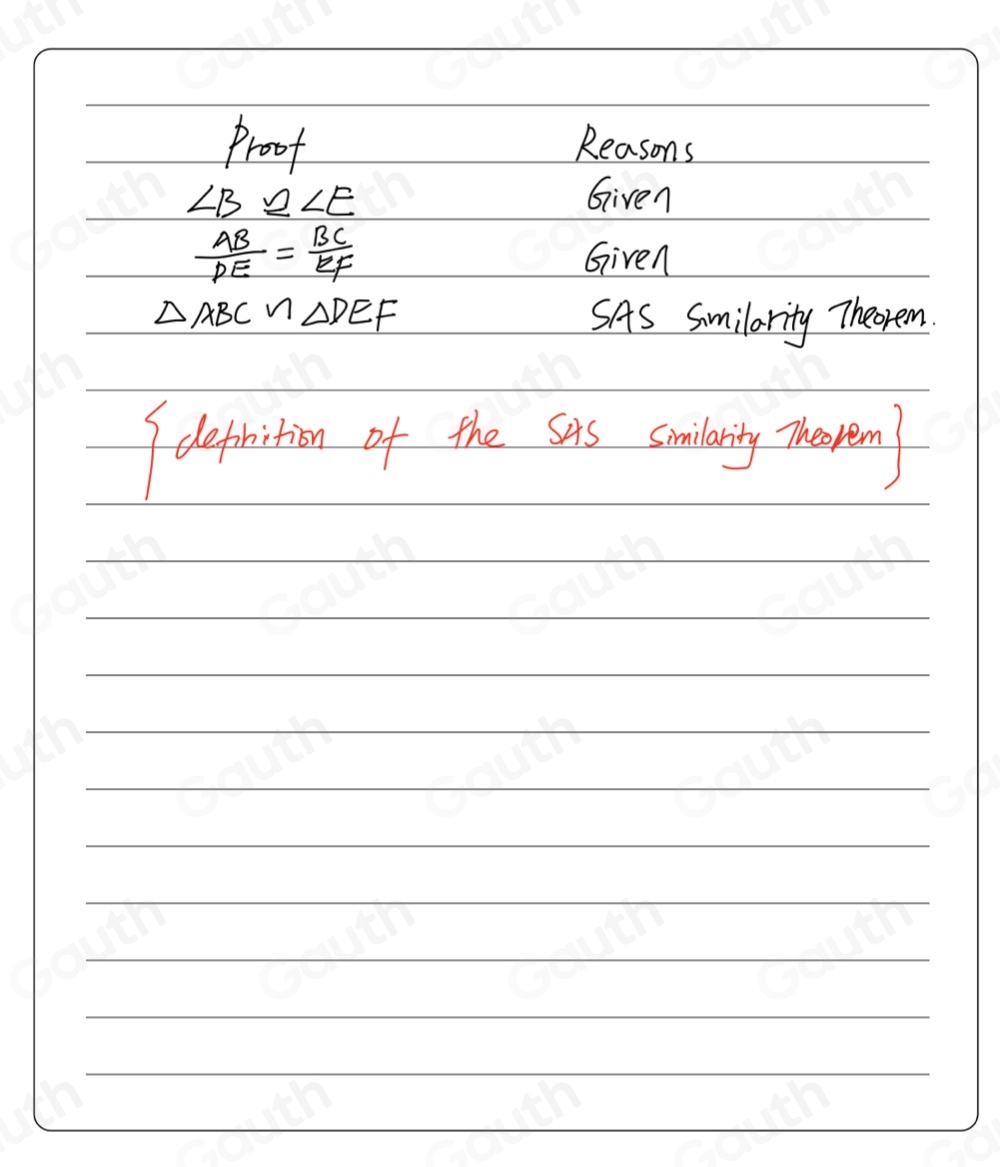 Proof Reasons
∠B ≅ ∠E Given
AB/DE = BC/EF Given
△ABC ∽ △DEF SAS Similarity Theorem.
{definition of the SAS similarity Theorem}
Gauth